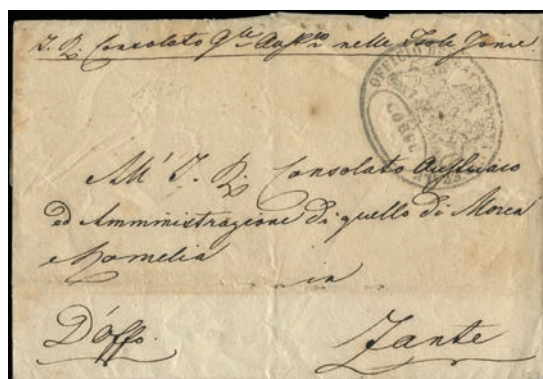 I. R. Consolato Gle Austco nelle Isole Jonie
OFFICIO
CORFU
All' I. R. Consolato Austriaco
ed Amministrazione di quello di Morea
e Romelia
in
D'offo.
Zante